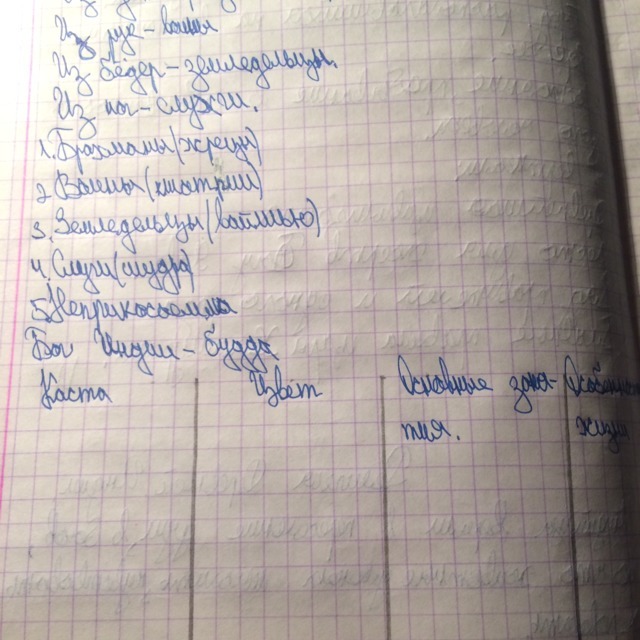 Из рук-воины
Из бедер-земледельцы.
Из ног-слуги.
1.Брахманы(жрецы)
2.Воины(кшатрии)
3.Земледельцы(вайшьи)
4.Слуги(шудры)
5.Неприкосаемые
Бог Индии-Будда
Каста Цвет Основные заня- Особенно
тия. жизни